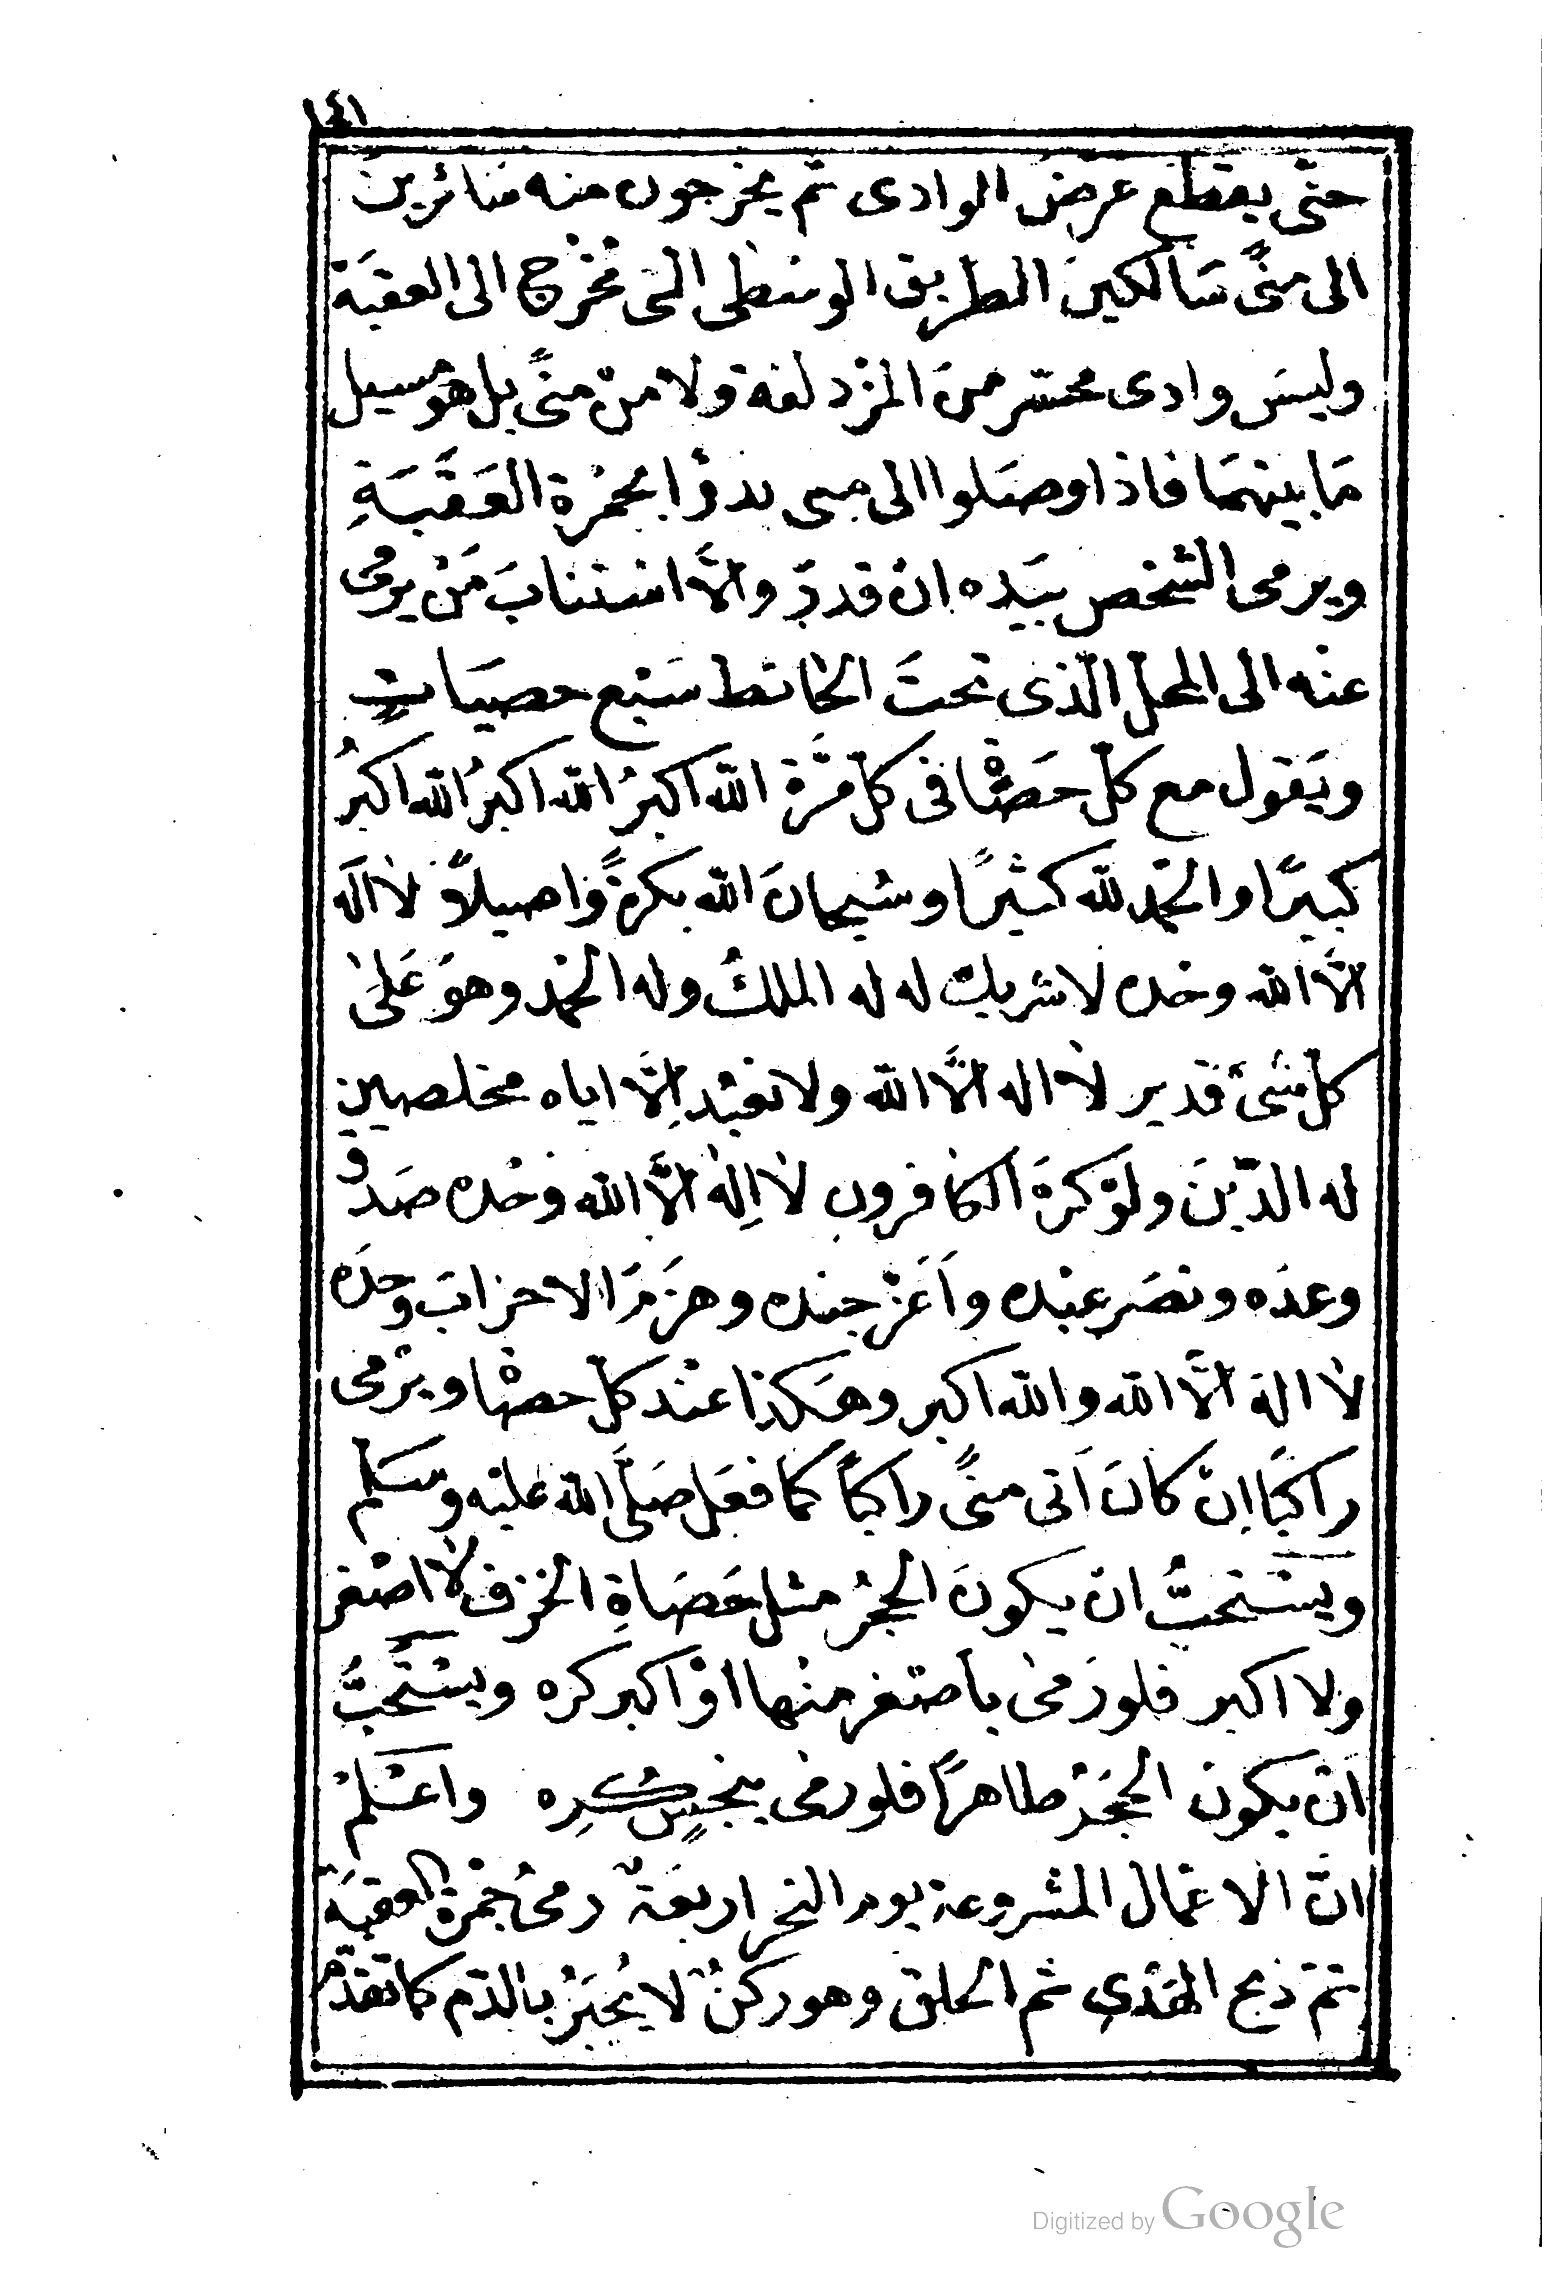 ١٤١
حتّى يقطع عرض الوادى ثم يخرجون منه سائرين
الى منًى سَالكين الطريق الوسطى التى تخرج الى العقبَة
وليسَ وادى محسّر من المزدلفة ولا من منًى بل هو مسيل
مَا بينهمَا فاذا وصَلوا الى منى بدؤا بجمرة العَقَبَةِ
ويرمى الشخص بيَده ان قدر والّا استنابَ مَنْ يرمى
عنْه الى المحلّ الّذى تحتَ الحائط سَبْع حصيَاتٍ
ويَقول مع كلّ حصَاة فى كل مَرّة الله اكبرُ الله اكبرُ الله اكبرُ
كبيرًا والحمْد لله كثيرًا وسُبحانَ الله بكرةً واصيلاً لا اله
الّا الله وحْده لا شريك له له الملكُ وله الحمْد وهوَ عَلىٰ
كلّ شىْء قدير لا اله الّا الله ولا نعْبُد اِلّا اياه مخلصين
له الدّينَ ولَوْ كرهَ الكافرون لا اِلٰه الّا الله وحْده صَدق
وعدَه ونصَر عبْده وأعَزّ جنده وهزَمَ الاحزابَ وحْدَه
لا اله الّا الله والله اكبر وهَكذا عنْد كلّ حصاة ويرْمى
راكبًا اِنْ كانَ اَتى منًى راكبًا كما فعَل صَلّى الله عليْه وسَلم
ويسْتحبُّ ان يكونَ الحجرُ مثل حَصَاةِ الخزف لا اصْغر
ولا اكبر فلو رَمىٰ باصْغر منْها اوْ اكبر كره ويسْتَحبُّ
انْ يكون الحجَرْ طاهرًا فلو رمى بنجسٍ كُرِه واعْلمْ
انّ الاعْمال المشروعة يوم النحر اربعَةٌ رمىُ جمْرة العقبَة
ثمّ ذبح الهَدْي ثم الحلق وهو ركنٌ لا يُجبَرُ بالدّم كما تقدّم
Digitized by Google